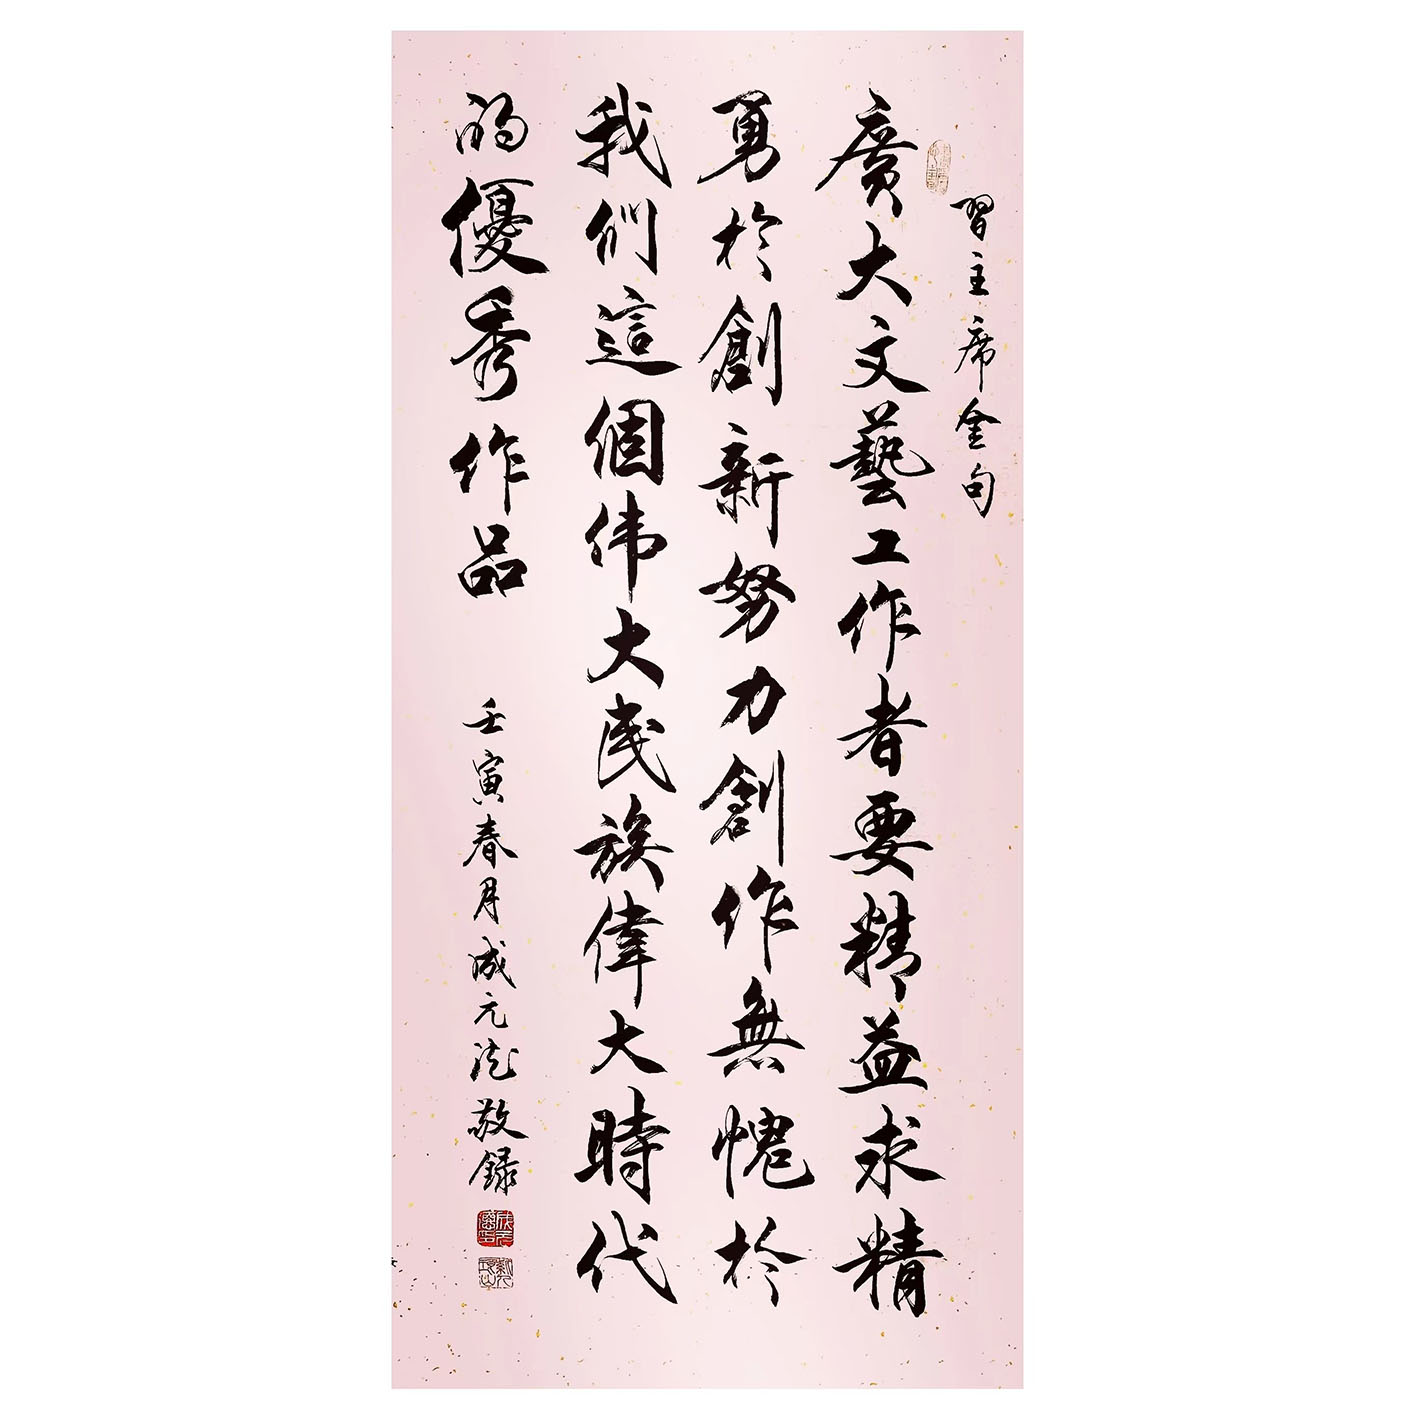 習主席金句
廣大文藝工作者要精益求精
勇於創新努力創作無愧於
我們這個伟大民族偉大時代
的優秀作品
壬寅春月成元浤敬録